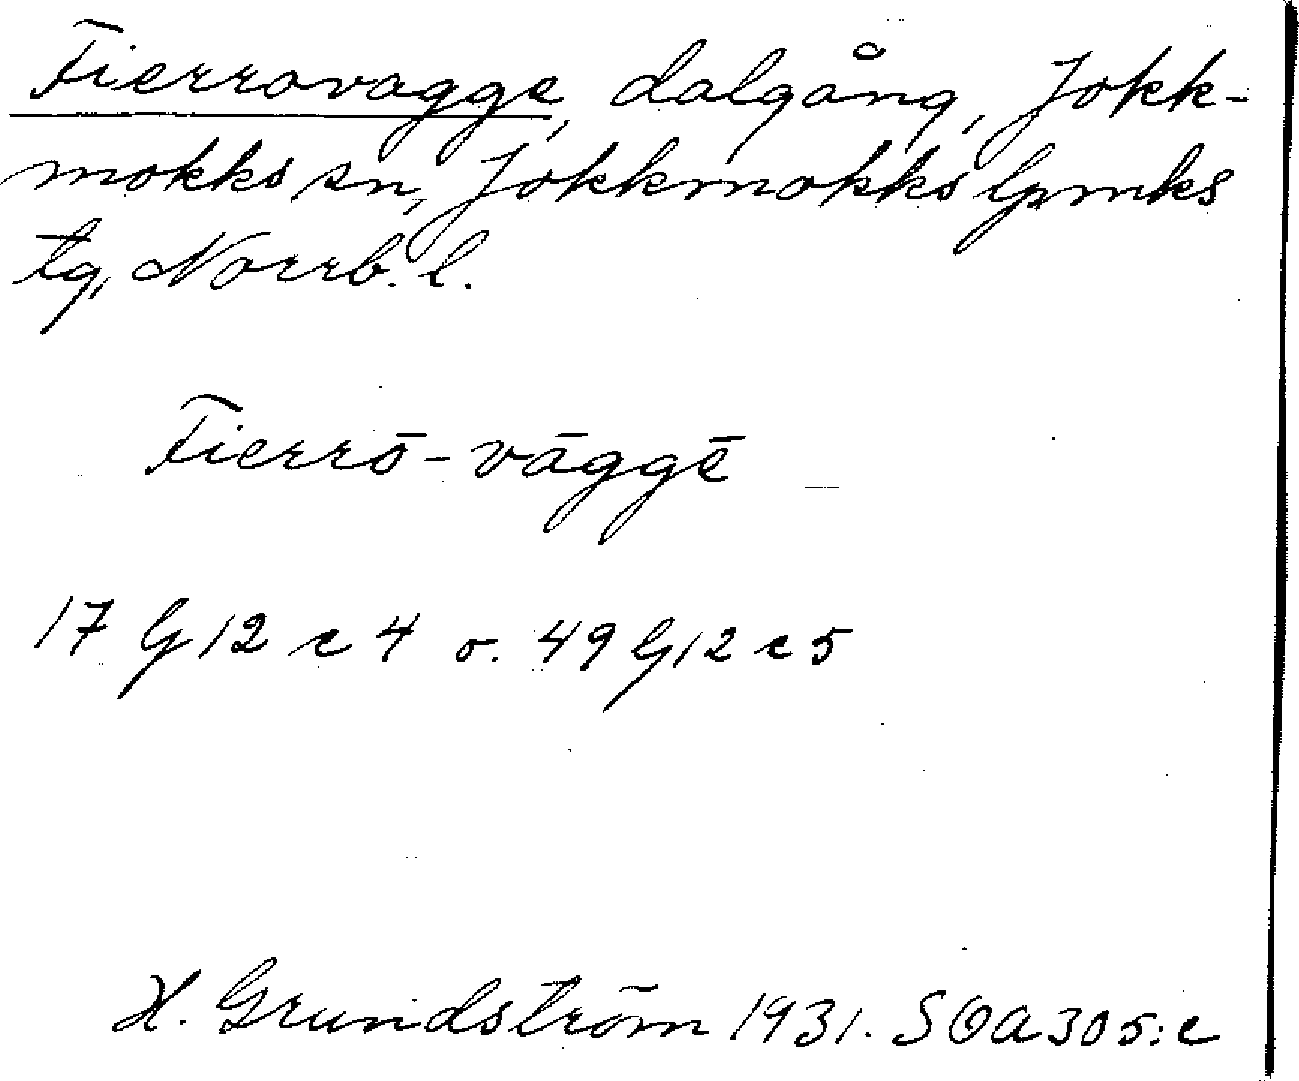 Tierrovagge, dalgång, Jokk-
mokks sn, Jokkmokks lpmks
tg, Norrb. l.
Tierrō-vāggē
17 G 12 c 4 o. 49 G 12 c 5
H. Grundström 1931. SOA 305:c